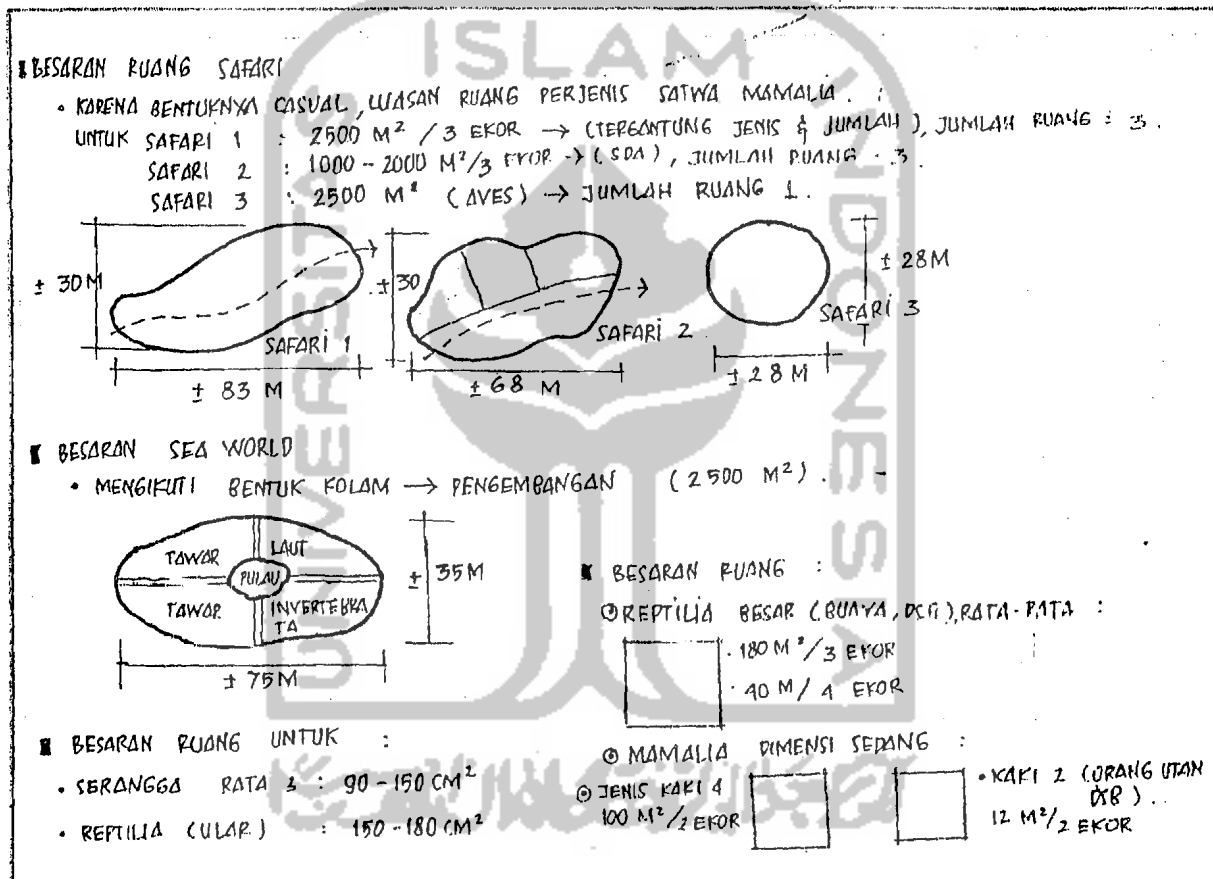 BESARAN RUANG SAFARI
• KARENA BENTUKNYA CASUAL, LUASAN RUANG PERJENIS SATWA MAMALIA. :
UNTUK SAFARI 1 : 2500 M² / 3 EKOR → (TERGANTUNG JENIS & JUMLAH), JUMLAH RUANG : 3.
SAFARI 2 : 1000 - 2000 M²/3 EKOR → (SDA), JUMLAH RUANG : 3.
SAFARI 3 : 2500 M² (AVES) → JUMLAH RUANG 1.
± 30 M
SAFARI 1
± 83 M
± 30
SAFARI 2
± 68 M
± 28 M
SAFARI 3
± 28 M
BESARAN SEA WORLD
• MENGIKUTI BENTUK KOLAM → PENGEMBANGAN (2500 M²).
TAWAR
LAUT
PULAU
TAWAR
INVERTEBRA
TA
± 35 M
± 75 M
BESARAN RUANG :
REPTILIA BESAR (BUAYA, DSB), RATA-RATA :
• 180 M²/3 EKOR
• 40 M/ 4 EKOR
BESARAN RUANG UNTUK :
• SERANGGA RATA 2 : 90 - 150 CM²
• REPTILIA (ULAR) : 150 - 180 CM²
MAMALIA DIMENSI SEDANG :
JENIS KAKI 4
100 M²/2 EKOR
• KAKI 2 (ORANG UTAN
DSB)..
12 M²/2 EKOR
UNIVERSITAS
ISLAM
INDONESIA